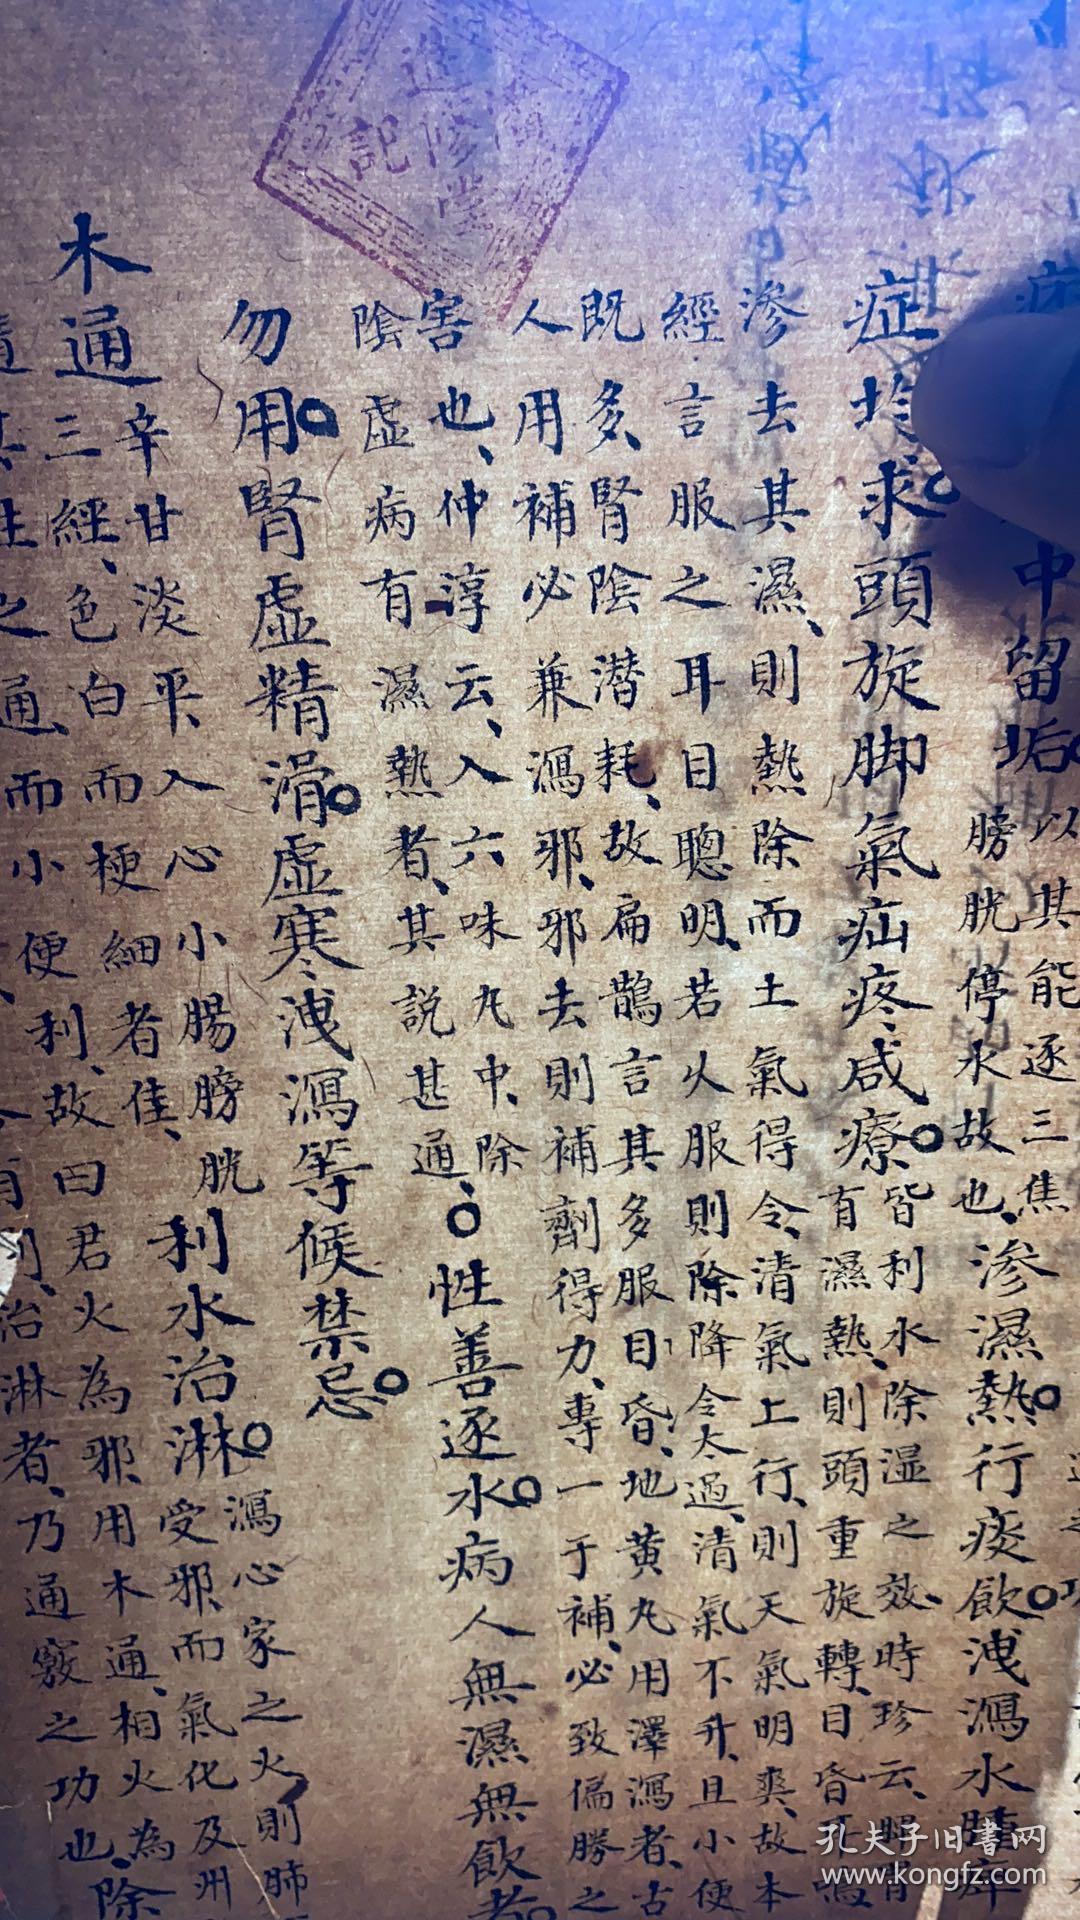 中留垢
以其能逐三焦
膀胱停水故也、滲濕熱行痰飲洩瀉水腫
症 求頭旋脚氣疝疼咸療
皆利水除湿之效、時珍云、
有濕熱、則頭重旋轉、目昏
滲去其濕、則熱除而土氣得令、清氣上行、則天氣明爽、故本
經言服之耳目聰明、若久服則除降令太過、清氣不升、且小便
既多、腎陰潜耗、故扁鵲言其多服目昏、地黄丸用澤瀉者、古
人用補必兼瀉邪、邪去則補劑得力、專一于補、必致偏勝之
害也、仲淳云、入六味丸中、除
陰虛病有濕熱者、其説甚通、性善逐水病人無濕無飲者
勿用腎虛精滑虛寒洩瀉等候禁忌
木通
辛甘淡平、入心小腸膀胱
三經、色白而梗細者佳、
利水治淋
瀉心家之火則肺
受邪、而氣化及州
其性之通、而小便利、故曰君火為邪、用木通、相火為
治淋者、乃通竅之功也、除
進修堂
記
孔夫子旧書网
www.kongfz.com